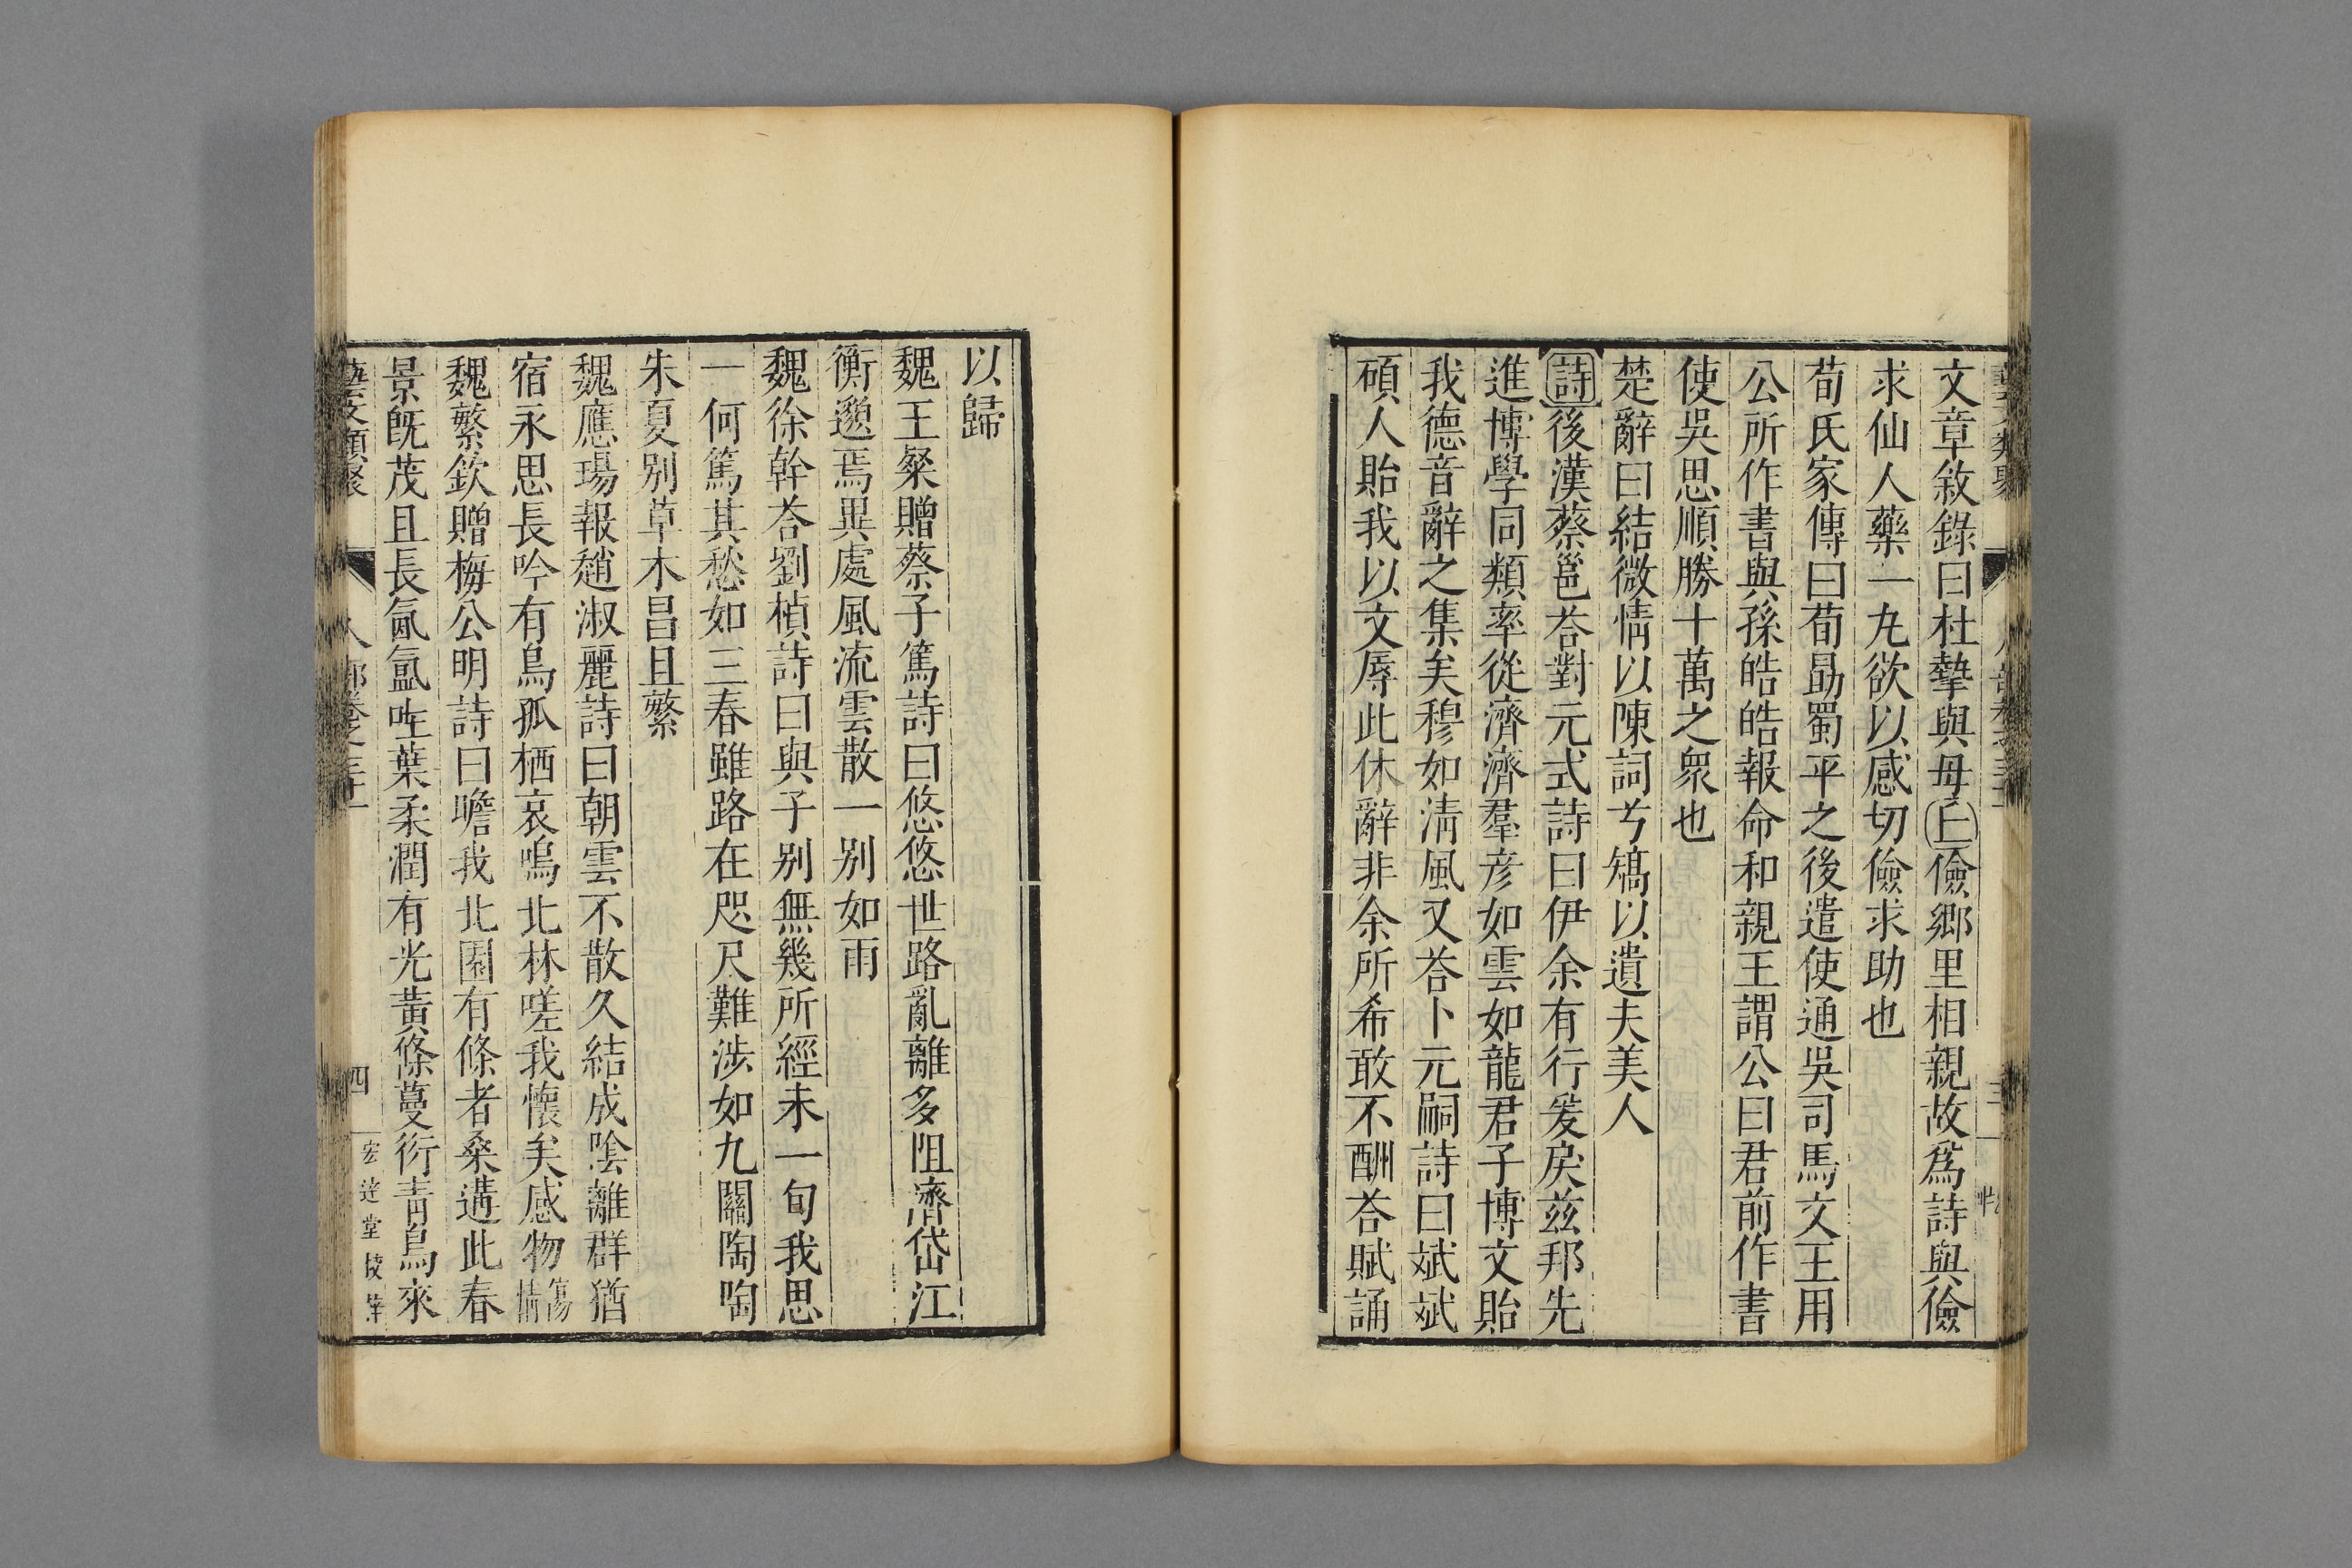 文章敘錄曰杜摯與毋丘儉鄉里相親故爲詩與儉
求仙人藥一丸欲以感切儉求助也
荀氏家傳曰荀勗蜀平之後遣使通吳司馬文王用
公所作書與孫皓皓報命和親王謂公曰君前作書
使吳思順勝十萬之衆也
楚辭曰結微情以陳詞兮矯以遺夫美人
詩後漢蔡邕荅對元式詩曰伊余有行爰戾茲邦先
進博學同類率從濟濟羣彥如雲如龍君子博文貽
我德音辭之集矣穆如淸風又荅卜元嗣詩曰斌斌
碩人貽我以文辱此休辭非余所希敢不酬荅賦誦
以歸
魏王粲贈蔡子篤詩曰悠悠世路亂離多阻濟岱江
衡邈焉異處風流雲散一別如雨
魏徐幹荅劉楨詩曰與子别無幾所經未一旬我思
一何篤其愁如三春雖路在咫尺難涉如九關陶陶
朱夏别草木昌且繁
魏應瑒報趙淑麗詩曰朝雲不散久結成陰離群猶
宿永思長吟有鳥孤栖哀鳴北林嗟我懷矣感物傷情
魏繁欽贈梅公明詩曰瞻我北園有條者桑遘此春
景旣茂且長氤氳吐葉柔潤有光黃條蔓衍靑鳥來
藝文類聚 人部卷之三十一 四 宏達堂校